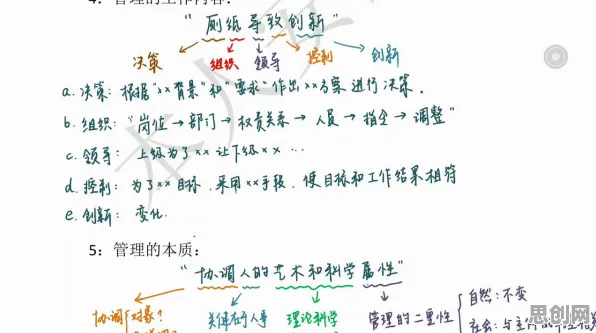 4. 管理的工作内容:
"厕纸导致创新"
决策 组织 领导 控制 创新
a. 决策: 根据"xx背景"和"要求"作出xx方案进行决策.
b. 组织: "岗位→部门→权责关系→人员→指令→调整"
c. 领导: 上级为了xx让下级xx ...
d. 控制: 为了xx目标, 采用xx手段, 使目标和工作结果相符
e. 创新: 变化.
5: 管理的本质:
"协调人的艺术和科学属性"
协调 对象? 关键在于人事 理论科学 管理的二重性 自然: 不变
社会: 与
本人
思创网